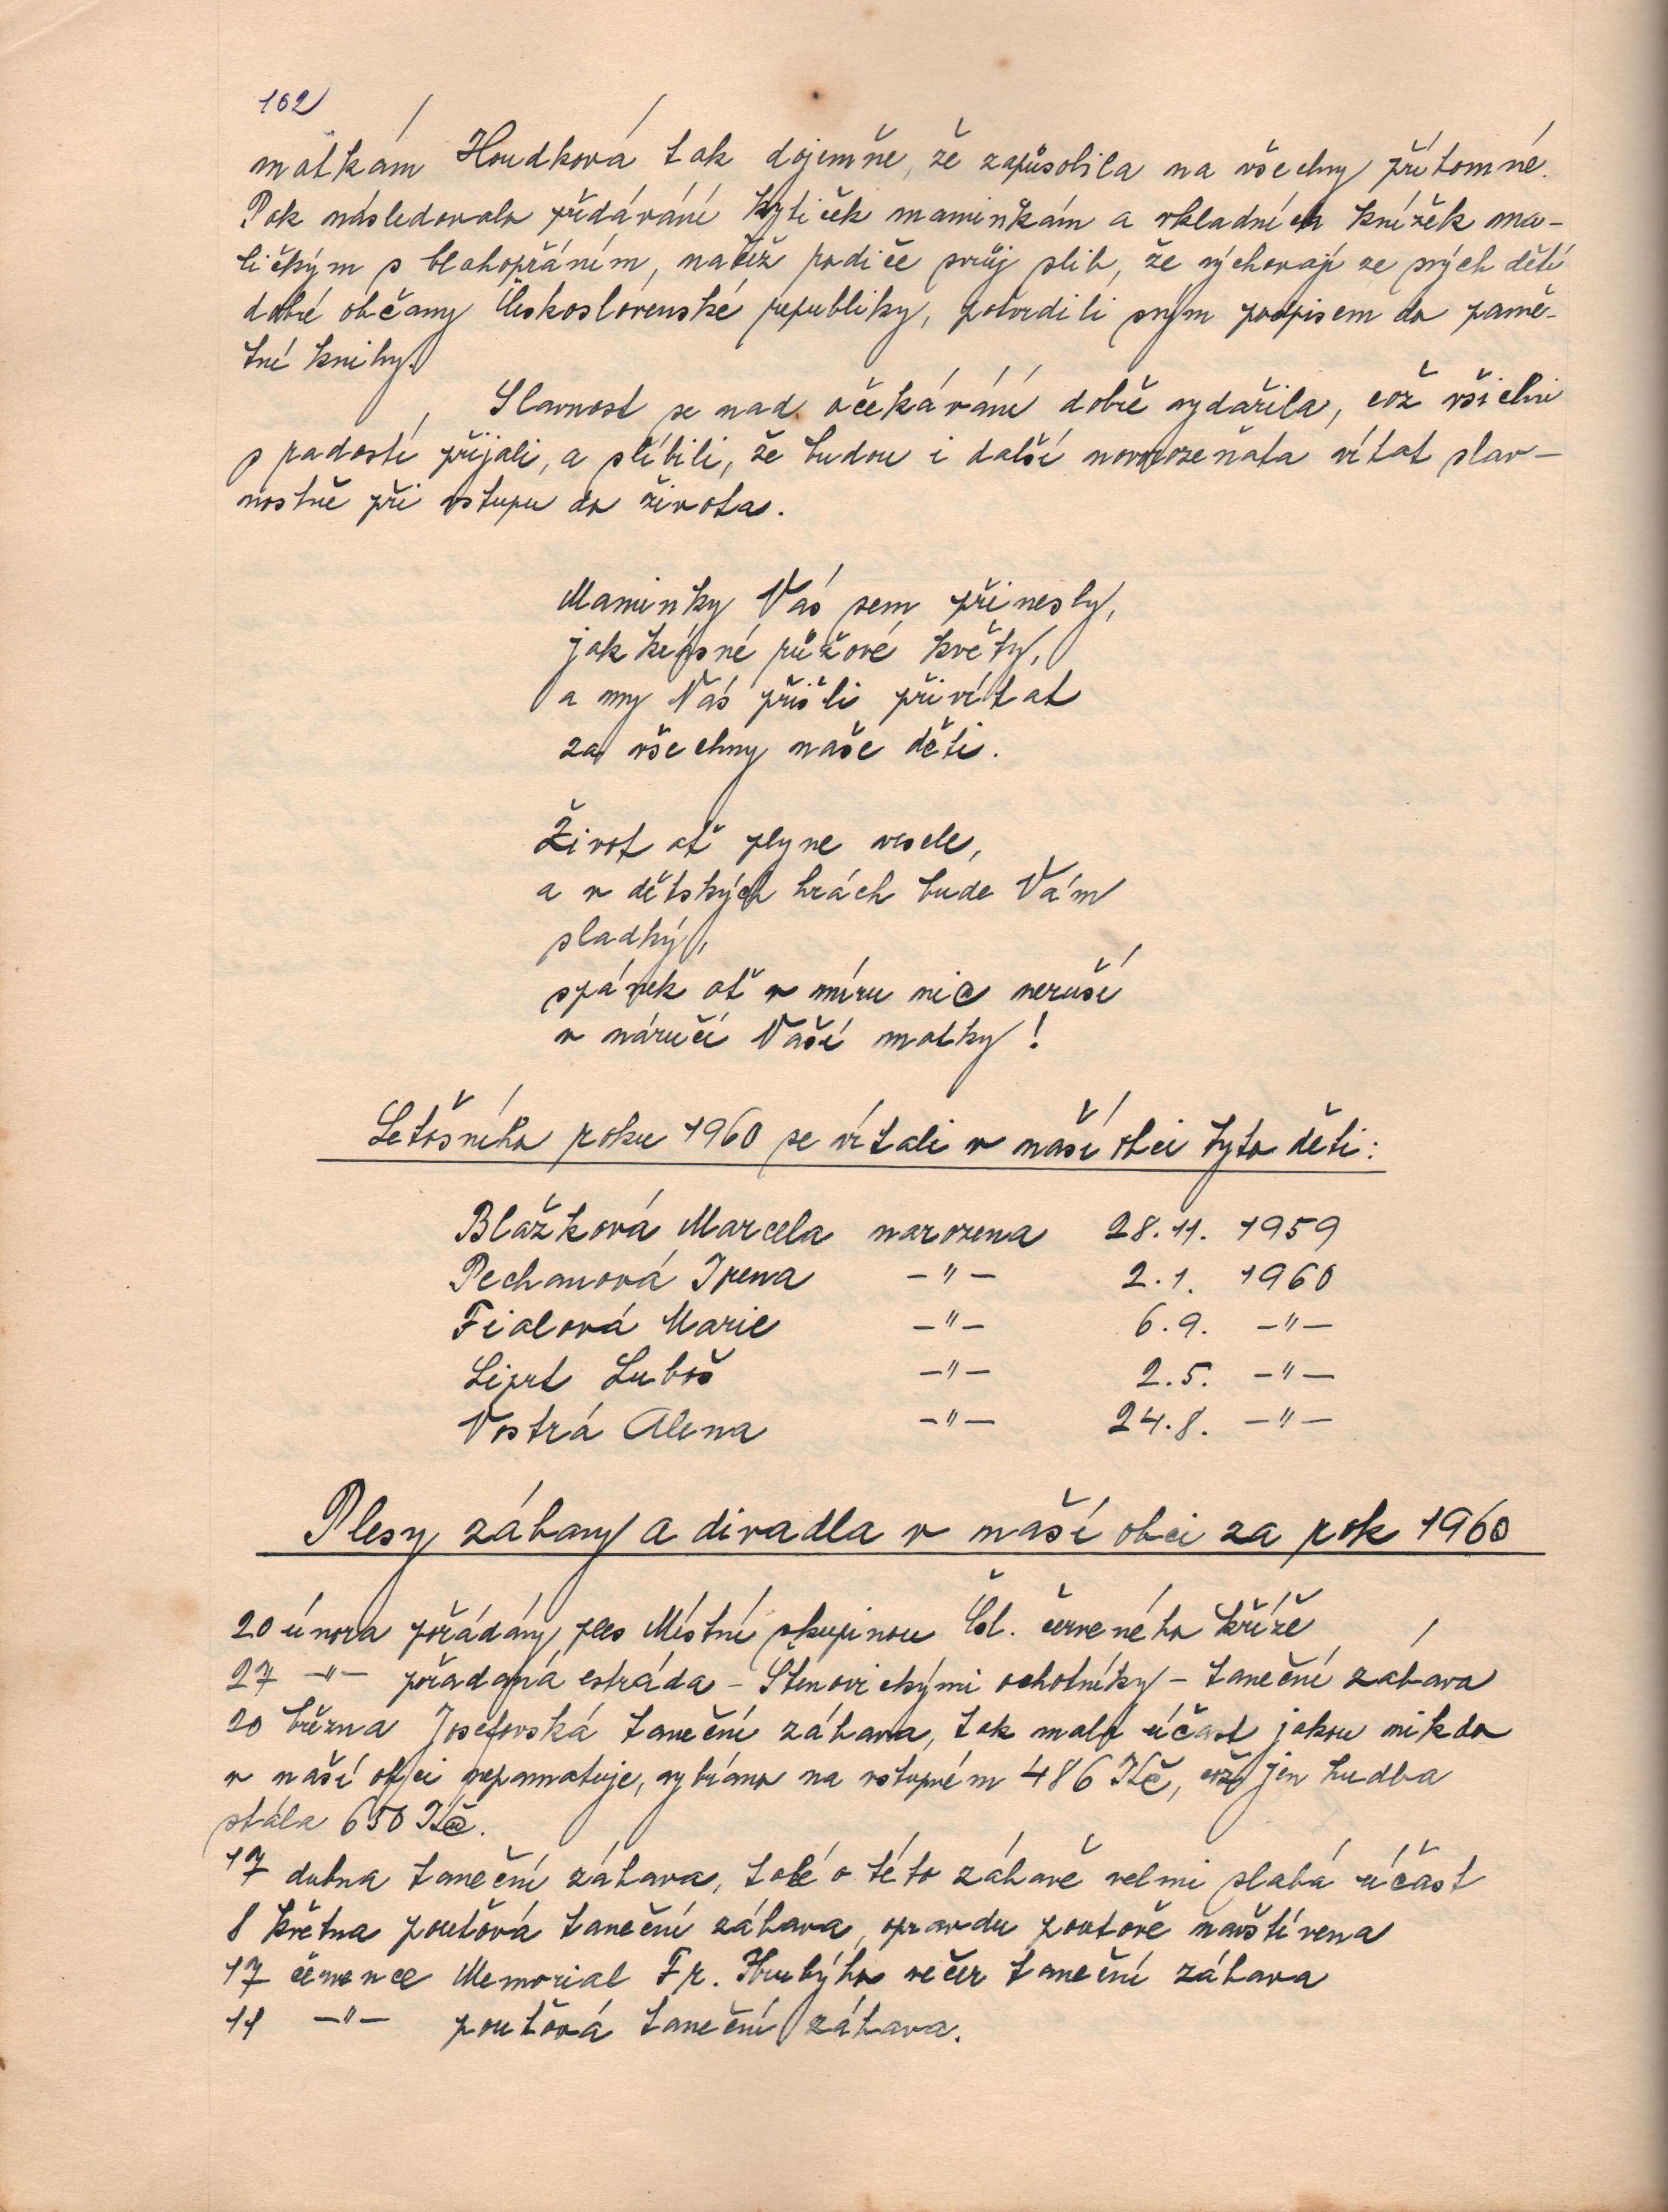 102
matkám Houdková tak dojemně, že zapůsobila na všechny přítomné.
Pak následovalo předávání kytiček maminkám a vkladních knížek ma-
ličkým s blahopřáním, načež rodiče svůj slib, že vychovají ze svých dětí
dobré občany Československé republiky, potvrdili svým podpisem do pamě-
tní knihy.
Slavnost se nad očekávání dobře vydařila, což všichni
s radostí přijali, a slíbili, že budou i další novorozeňata vítat slav-
nostně při vstupu do života.
Maminky Vás sem přinesly,
jak krásné růžové květy,
a my Vás přišli přivítat
za všechny naše děti.
Život ať plyne vesele,
a v dětských hrách bude Vám
sladký,
spánek ať v míru nic neruší
v náručí Vaší matky!
Letošního roku 1960 se vítali v naší obci tyto děti:
Blažková Marcela narozena 28.11. 1959
Pechanová Irena -"- 2.1. 1960
Fialová Marie -"- 6.9. -"-
Liprt Luboš -"- 2.5. -"-
Vostrá Alena -"- 24.8. -"-
Plesy zábavy a divadla v naší obci za rok 1960
20 února pořádány ples Místní skupinou Čsl. červeného kříže
27 -"- pořadaná estráda - Štěnovickými ochotníky - taneční zabava
20 března Josefovská taneční zábava, tak malo účast jakou nikdo
v naší obci nepamatuje, vybíráno na vstupném 486 Kčs, což jen hudba
stála 650 Kčs.
17 dubna taneční zábava, také o této zábavě velmi slabá účast
8 května pouťová taneční zábava, opravdu pouťově navštívena
17 července Memorial Fr. Hrubýho večer taneční zábava
11 -"- pouťová taneční zábava.